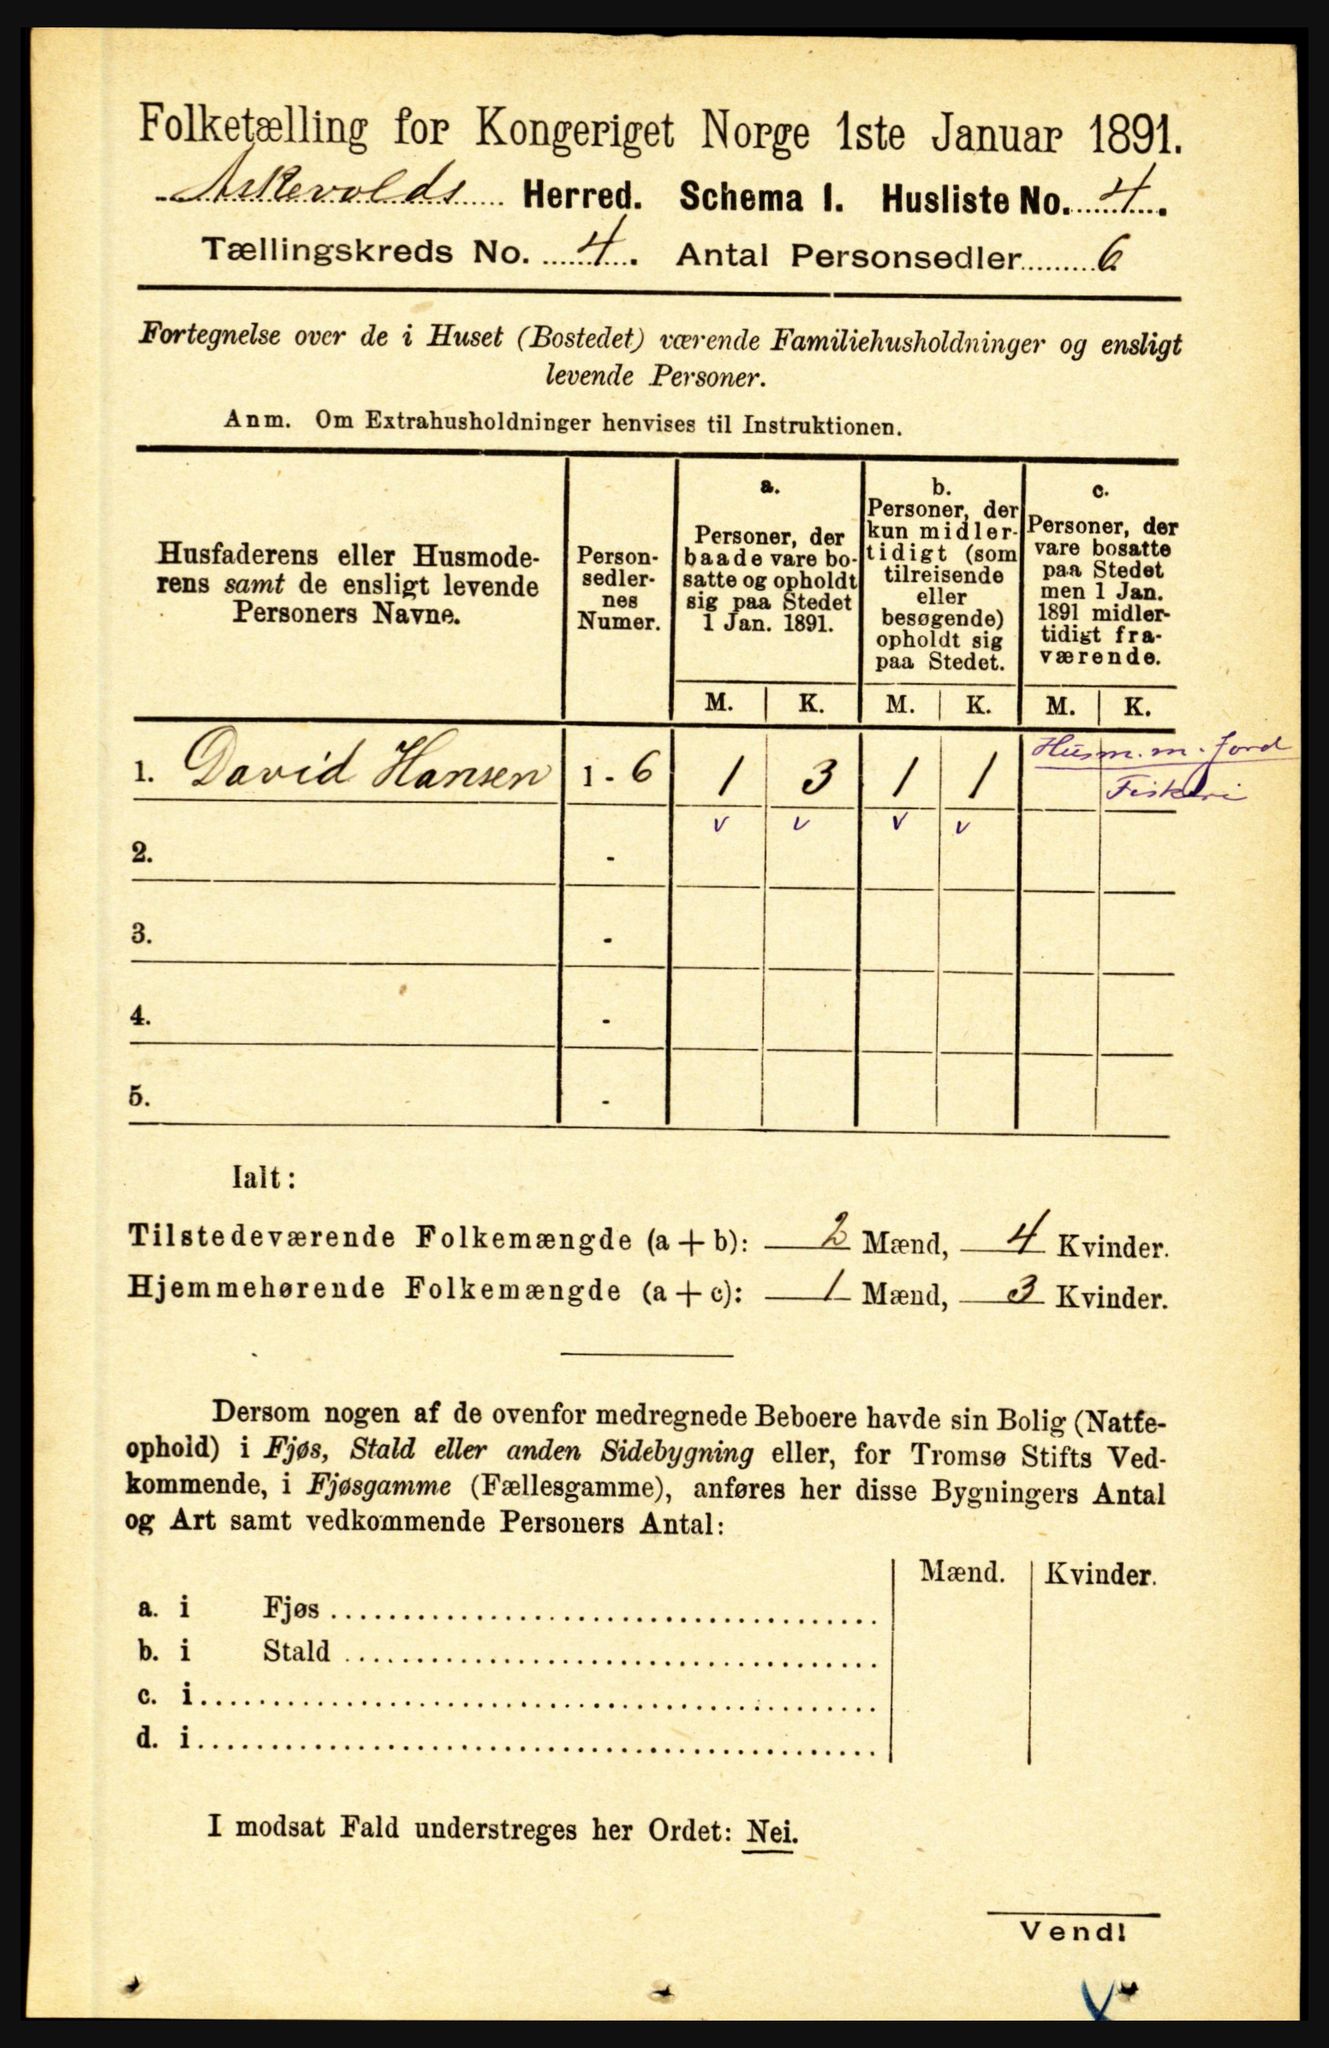 Folketælling for Kongeriget Norge 1ste Januar 1891.
Askevolds Herred. Schema I. Husliste No. 4.
Tællingskreds No. 4. Antal Personsedler 6
Fortegnelse over de i Huset (Bostedet) værende Familiehusholdninger og ensligt
levende Personer.
Anm. Om Extrahusholdninger henvises til Instruktionen.
Husfaderens eller Husmode-
rens samt de ensligt levende
Personers Navne.
Person-
sedler-
nes
Numer.
a.
Personer, der
baade vare bo-
satte og opholdt
sig paa Stedet
1 Jan. 1891.
b.
Personer, der
kun midler-
tidigt (som
tilreisende
eller
besøgende)
opholdt sig
paa Stedet.
c.
Personer, der
vare bosatte
paa Stedet
men 1 Jan.
1891 midler-
tidigt fra-
værende.
M. K. M. K. M. K.
Husm. m. Jord
1. David Hansen 1 - 6 1 3 1 1 Fiskeri
v v v v
2. -
3. -
4. -
5. -
Ialt:
Tilstedeværende Folkemængde (a + b): 2 Mænd, 4 Kvinder.
Hjemmehørende Folkemængde (a + c): 1 Mænd, 3 Kvinder.
Dersom nogen af de ovenfor medregnede Beboere havde sin Bolig (Natte-
ophold) i Fjøs, Stald eller anden Sidebygning eller, for Tromsø Stifts Ved-
kommende, i Fjøsgamme (Fællesgamme), anføres her disse Bygningers Antal
og Art samt vedkommende Personers Antal:
Mænd. Kvinder.
a. i Fjøs
b. i Stald
c. i
d. i
I modsat Fald understreges her Ordet: Nei.
Vend!